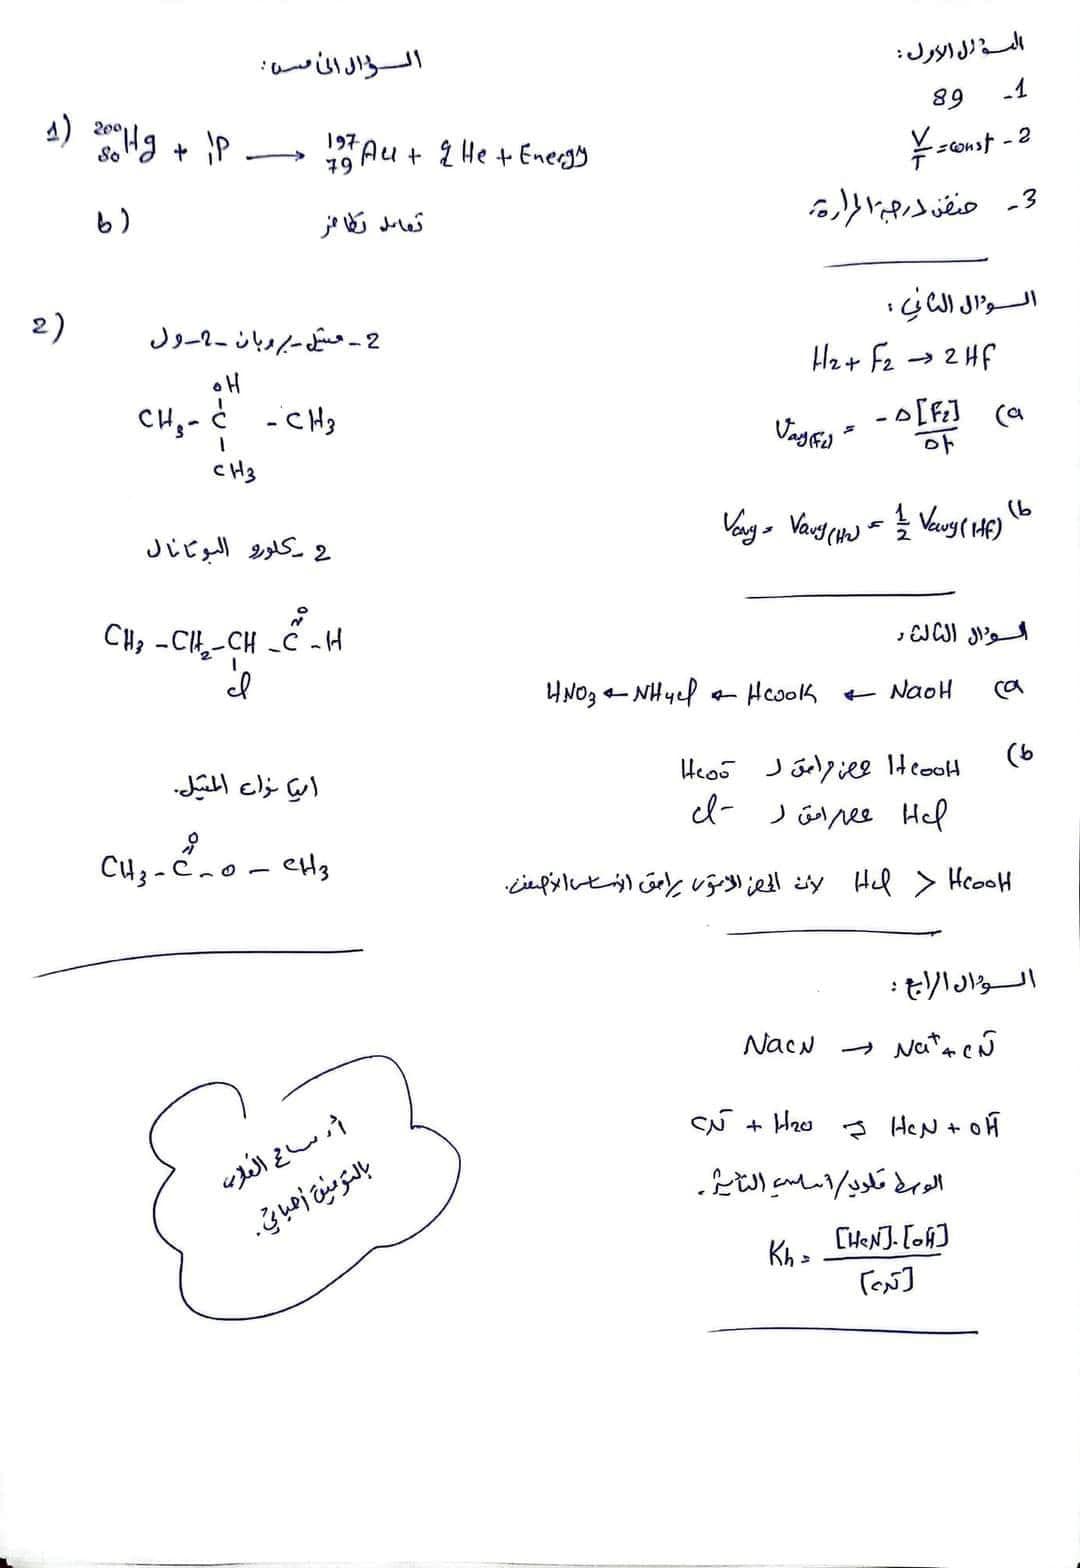 السؤال الاول:
1- 89
2- V/T = const
3- خفض درجة الحرارة
السؤال الثاني:
H₂ + F₂ → 2HF
a) Vavg(F₂) = -Δ[F₂]/Δt
b) Vavg = Vavg(H₂) = 1/2 Vavg(HF)
السؤال الثالث:
a) NaOH ← HCOOK ← NH₄Cl ← HNO₃
b) HCOOH حمض مرافق لـ HCOO⁻
HCl حمض مرافق لـ Cl⁻
HCOOH < HCl لأن الحمض الأقوى يرافق الأساس الأضعف.
السؤال الرابع:
NaCN → Na⁺ + CN⁻
CN⁻ + H₂O ⇌ HCN + OH⁻
الوسط قلوي/أساسي التأثير.
Kh = [HCN].[OH⁻]/[CN⁻]
السؤال الخامس:
1) ²⁰⁰₈₀Hg + ¹₁P → ¹⁹⁷₇₉Au + ⁴₂He + Energy
b) تفاعل تطافر
2) 2- متيل-بروبان-2-ول
OH
CH₃ - C - CH₃
CH₃
2- كلورو البوتانال
O
CH₃ - CH₂ - CH - C - H
Cl
إيتانوات المتيل.
O
CH₃ - C - O - CH₃
أ. سامح
بالتوفيق أحبائي.